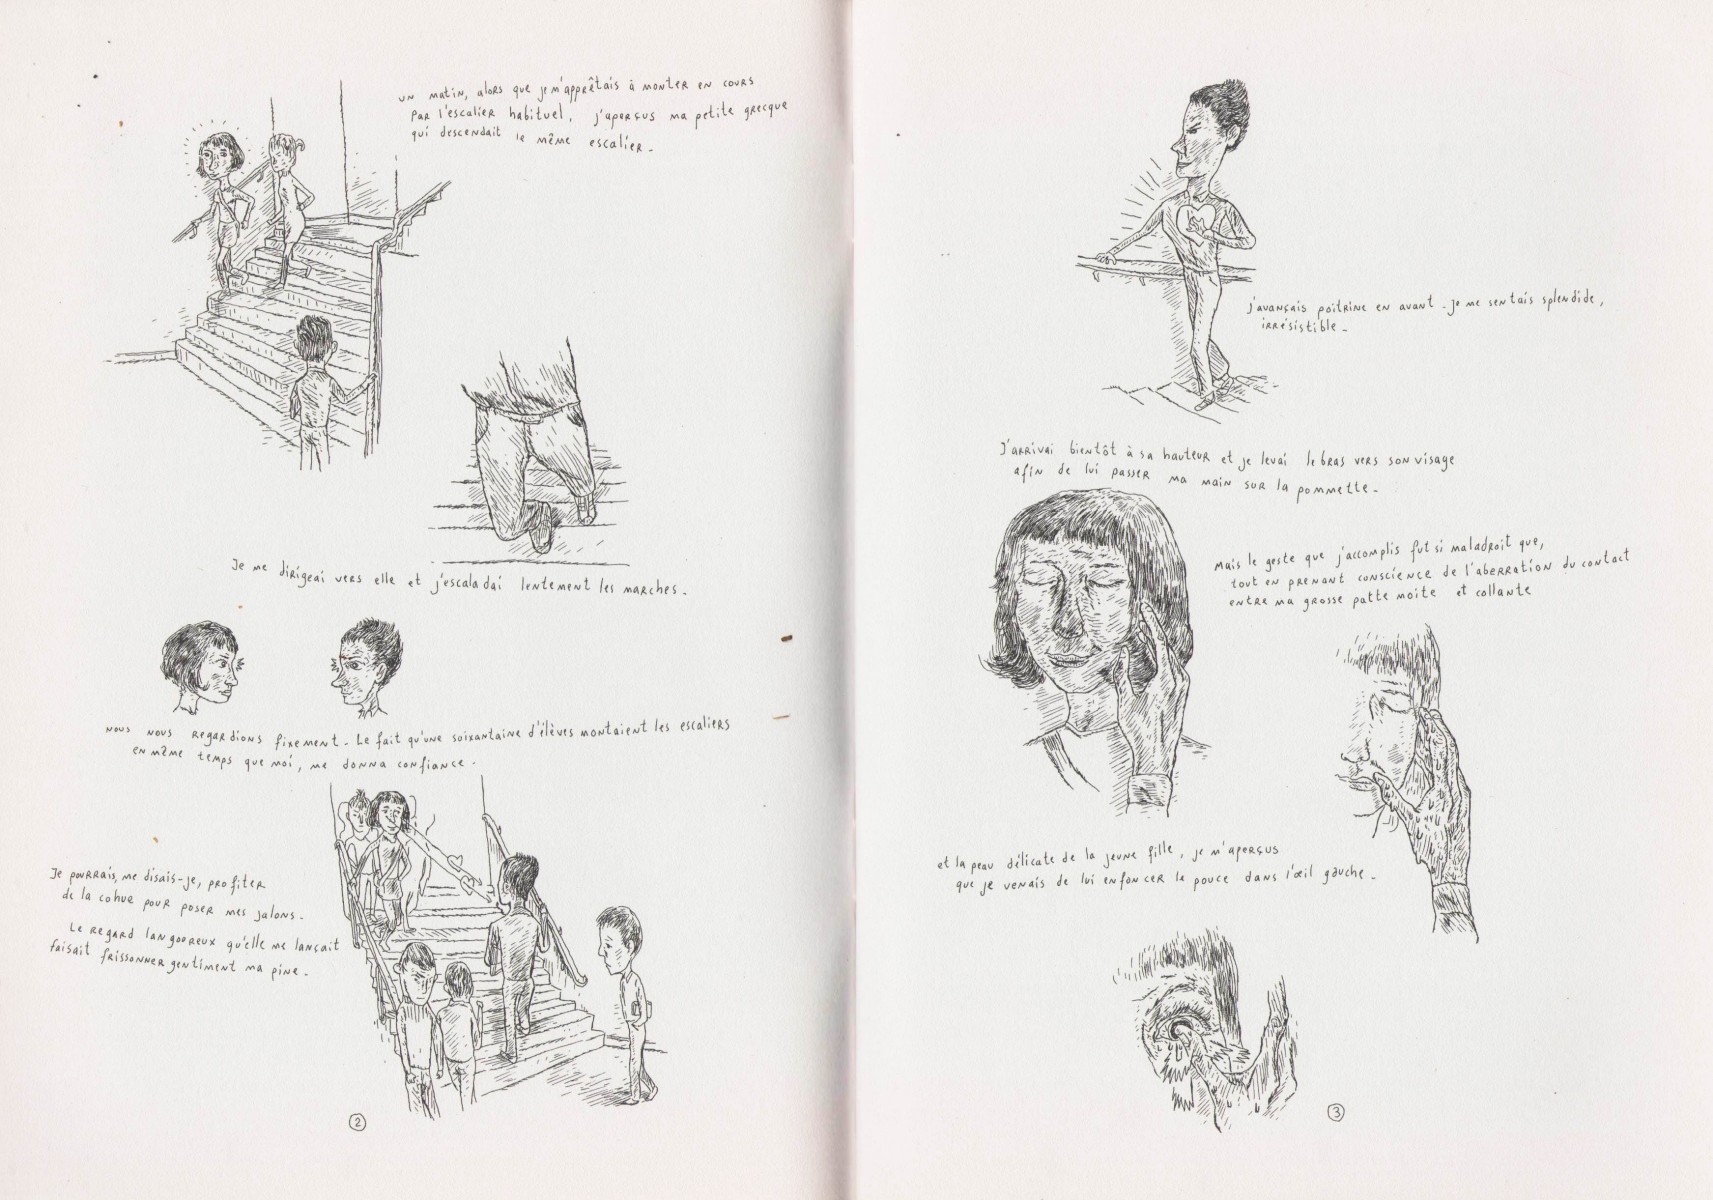 un matin, alors que je m'apprêtais à monter en cours
par l'escalier habituel, j'aperçus ma petite grecque
qui descendait le même escalier.
Je me dirigeai vers elle et j'escaladai lentement les marches.
nous nous regardions fixement. Le fait qu'une soixantaine d'élèves montaient les escaliers
en même temps que moi, me donna confiance.
Je pourrais, me disais-je, profiter
de la cohue pour poser mes jalons.
Le regard langooreux qu'elle me lançait
faisait frissonner gentiment ma pine.
2
j'avançais poitrine en avant. je me sentais splendide,
irrésistible.
J'arrivai bientôt à sa hauteur et je levai le bras vers son visage
afin de lui passer ma main sur la pommette.
Mais le geste que j'accomplis fut si maladroit que,
tout en prenant conscience de l'aberration du contact
entre ma grosse patte moite et collante
et la peau délicate de la jeune fille, je m'aperçus
que je venais de lui enfoncer le pouce dans l'œil gauche.
3